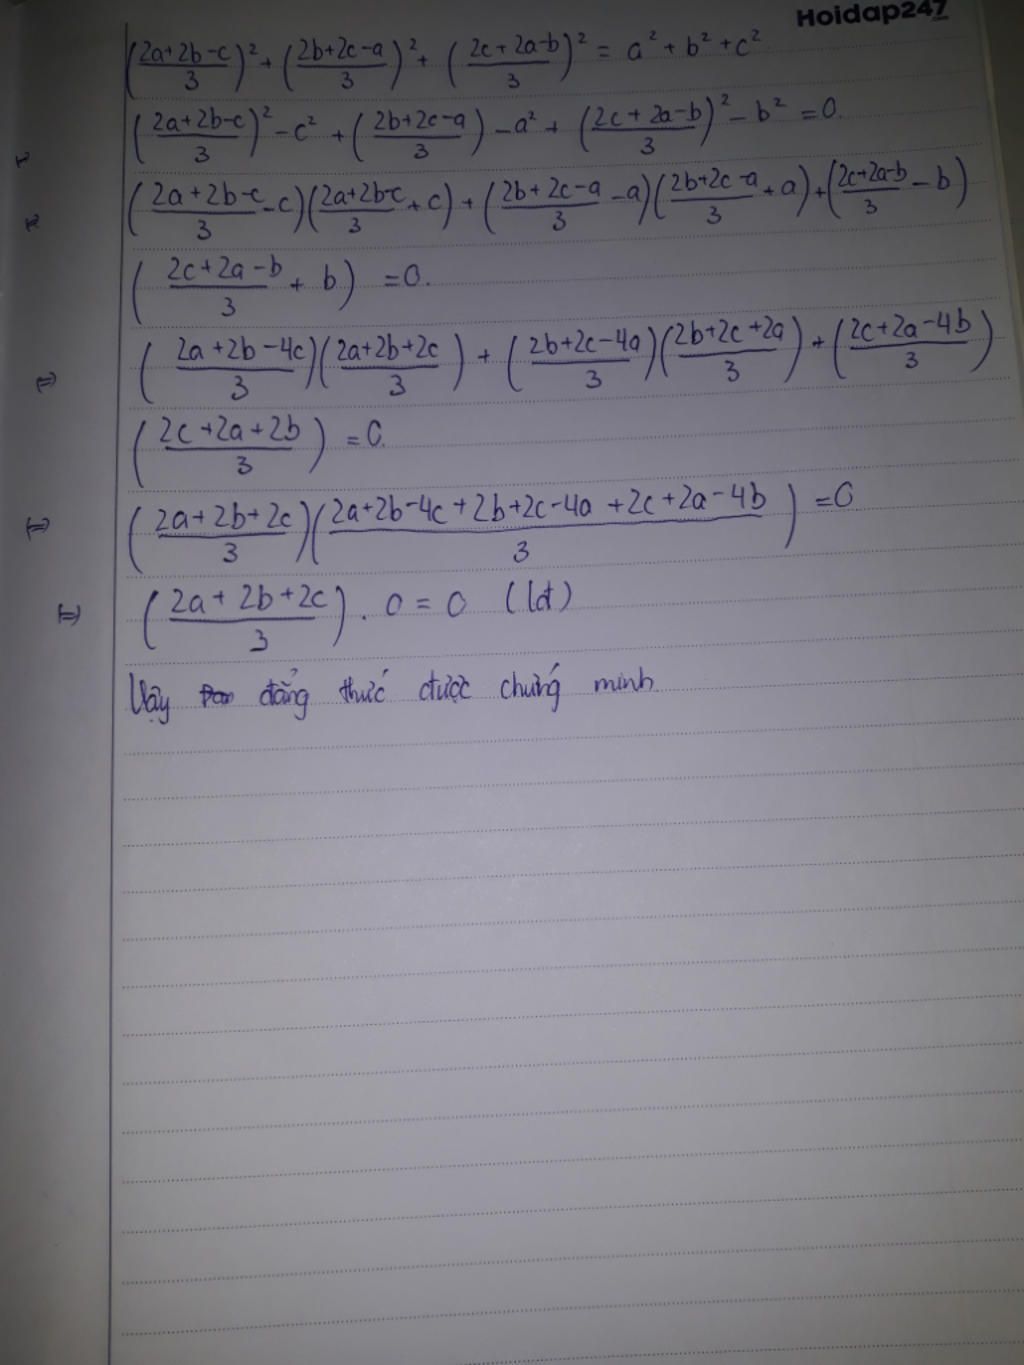 Hoidap247
.com
(\frac{2a+2b-c}{3})^2 + (\frac{2b+2c-a}{3})^2 + (\frac{2c+2a-b}{3})^2 = a^2 + b^2 + c^2
(\frac{2a+2b-c}{3})^2 - c^2 + (\frac{2b+2c-a}{3}) - a^2 + (\frac{2c+2a-b}{3})^2 - b^2 = 0.
(\frac{2a+2b-c}{3} - c)(\frac{2a+2b-c}{3} + c) + (\frac{2b+2c-a}{3} - a)(\frac{2b+2c-a}{3} + a) + (\frac{2c+2a-b}{3} - b)
(\frac{2c+2a-b}{3} + b) = 0.
⇔ (\frac{2a+2b-4c}{3})(\frac{2a+2b+2c}{3}) + (\frac{2b+2c-4a}{3})(\frac{2b+2c+2a}{3}) + (\frac{2c+2a-4b}{3})
(\frac{2c+2a+2b}{3}) = 0.
⇔ (\frac{2a+2b+2c}{3})(\frac{2a+2b-4c+2b+2c-4a+2c+2a-4b}{3}) = 0
⇔ (\frac{2a+2b+2c}{3}) . 0 = 0 (lđ)
Vậy đẳng thức được chứng minh.